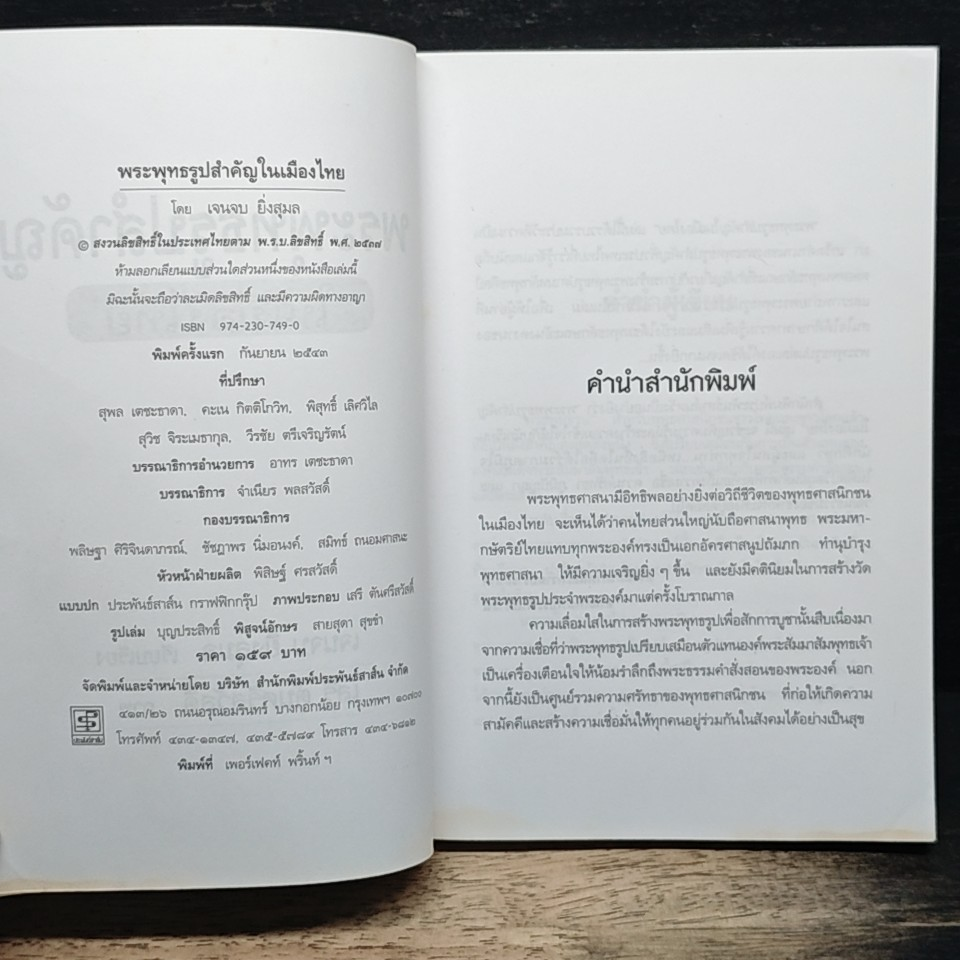 พระพุทธรูปสำคัญในเมืองไทย
โดย เจนจบ ยิ่งสุมล
© สงวนลิขสิทธิ์ในประเทศไทยตาม พ.ร.บ.ลิขสิทธิ์ พ.ศ. ๒๕๓๗
ห้ามลอกเลียนแบบส่วนใดส่วนหนึ่งของหนังสือเล่มนี้
มิฉะนั้นจะถือว่าละเมิดลิขสิทธิ์ และมีความผิดทางอาญา
ISBN 974-230-749-0
พิมพ์ครั้งแรก กันยายน ๒๕๔๓
ที่ปรึกษา
สุพล เตชะธาดา, คะเน กิตติโกวิท, พิสุทธิ์ เลิศวิไล
สุวิช จิระเมธากุล, วีรชัย ตรีเจริญรัตน์
บรรณาธิการอำนวยการ อาทร เตชะธาดา
บรรณาธิการ จำเนียร พลสวัสดิ์
กองบรรณาธิการ
พลิษฐา ศิริจินดาภรณ์, ชัชฎาพร นิ่มอนงค์, สมิทธ์ ถนอมศาสนะ
หัวหน้าฝ่ายผลิต พิสิษฐ์ ศรสวัสดิ์
แบบปก ประพันธ์สาส์น กราฟฟิกกรุ๊ป ภาพประกอบ เสรี ตันศรีสวัสดิ์
รูปเล่ม บุญประสิทธิ์ พิสูจน์อักษร สายสุดา สุขขำ
ราคา ๑๕๙ บาท
จัดพิมพ์และจำหน่ายโดย บริษัท สำนักพิมพ์ประพันธ์สาส์น จำกัด
๔๑๓/๒๖ ถนนอรุณอมรินทร์ บางกอกน้อย กรุงเทพฯ ๑๐๗๐๐
โทรศัพท์ ๔๓๔-๑๓๔๗, ๔๓๕-๕๗๘๙ โทรสาร ๔๓๔-๖๘๑๒
พิมพ์ที่ เพอร์เฟคท์ พริ้นท์ ฯ
คำนำสำนักพิมพ์
พระพุทธศาสนามีอิทธิพลอย่างยิ่งต่อวิถีชีวิตของพุทธศาสนิกชน
ในเมืองไทย จะเห็นได้ว่าคนไทยส่วนใหญ่นับถือศาสนาพุทธ พระมหา-
กษัตริย์ไทยแทบทุกพระองค์ทรงเป็นเอกอัครศาสนูปถัมภก ทำนุบำรุง
พุทธศาสนา ให้มีความเจริญยิ่ง ๆ ขึ้น และยังมีคตินิยมในการสร้างวัด
พระพุทธรูปประจำพระองค์มาแต่ครั้งโบราณกาล
ความเลื่อมใสในการสร้างพระพุทธรูปเพื่อสักการบูชานั้นสืบเนื่องมา
จากความเชื่อที่ว่าพระพุทธรูปเปรียบเสมือนตัวแทนองค์พระสัมมาสัมพุทธเจ้า
เป็นเครื่องเตือนใจให้น้อมรำลึกถึงพระธรรมคำสั่งสอนของพระองค์ นอก
จากนี้ยังเป็นศูนย์รวมความศรัทธาของพุทธศาสนิกชน ที่ก่อให้เกิดความ
สามัคคีและสร้างความเชื่อมั่นให้ทุกคนอยู่ร่วมกันในสังคมได้อย่างเป็นสุข